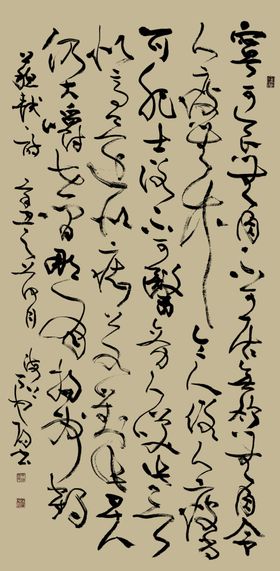 寧可食無肉不可居無竹無肉令
人瘦無竹令人俗人瘦尚
可肥士俗不可醫旁人笑此言
似高還似痴若對此君
仍大嚼世間那有揚州鶴
蘇軾詩 月 書